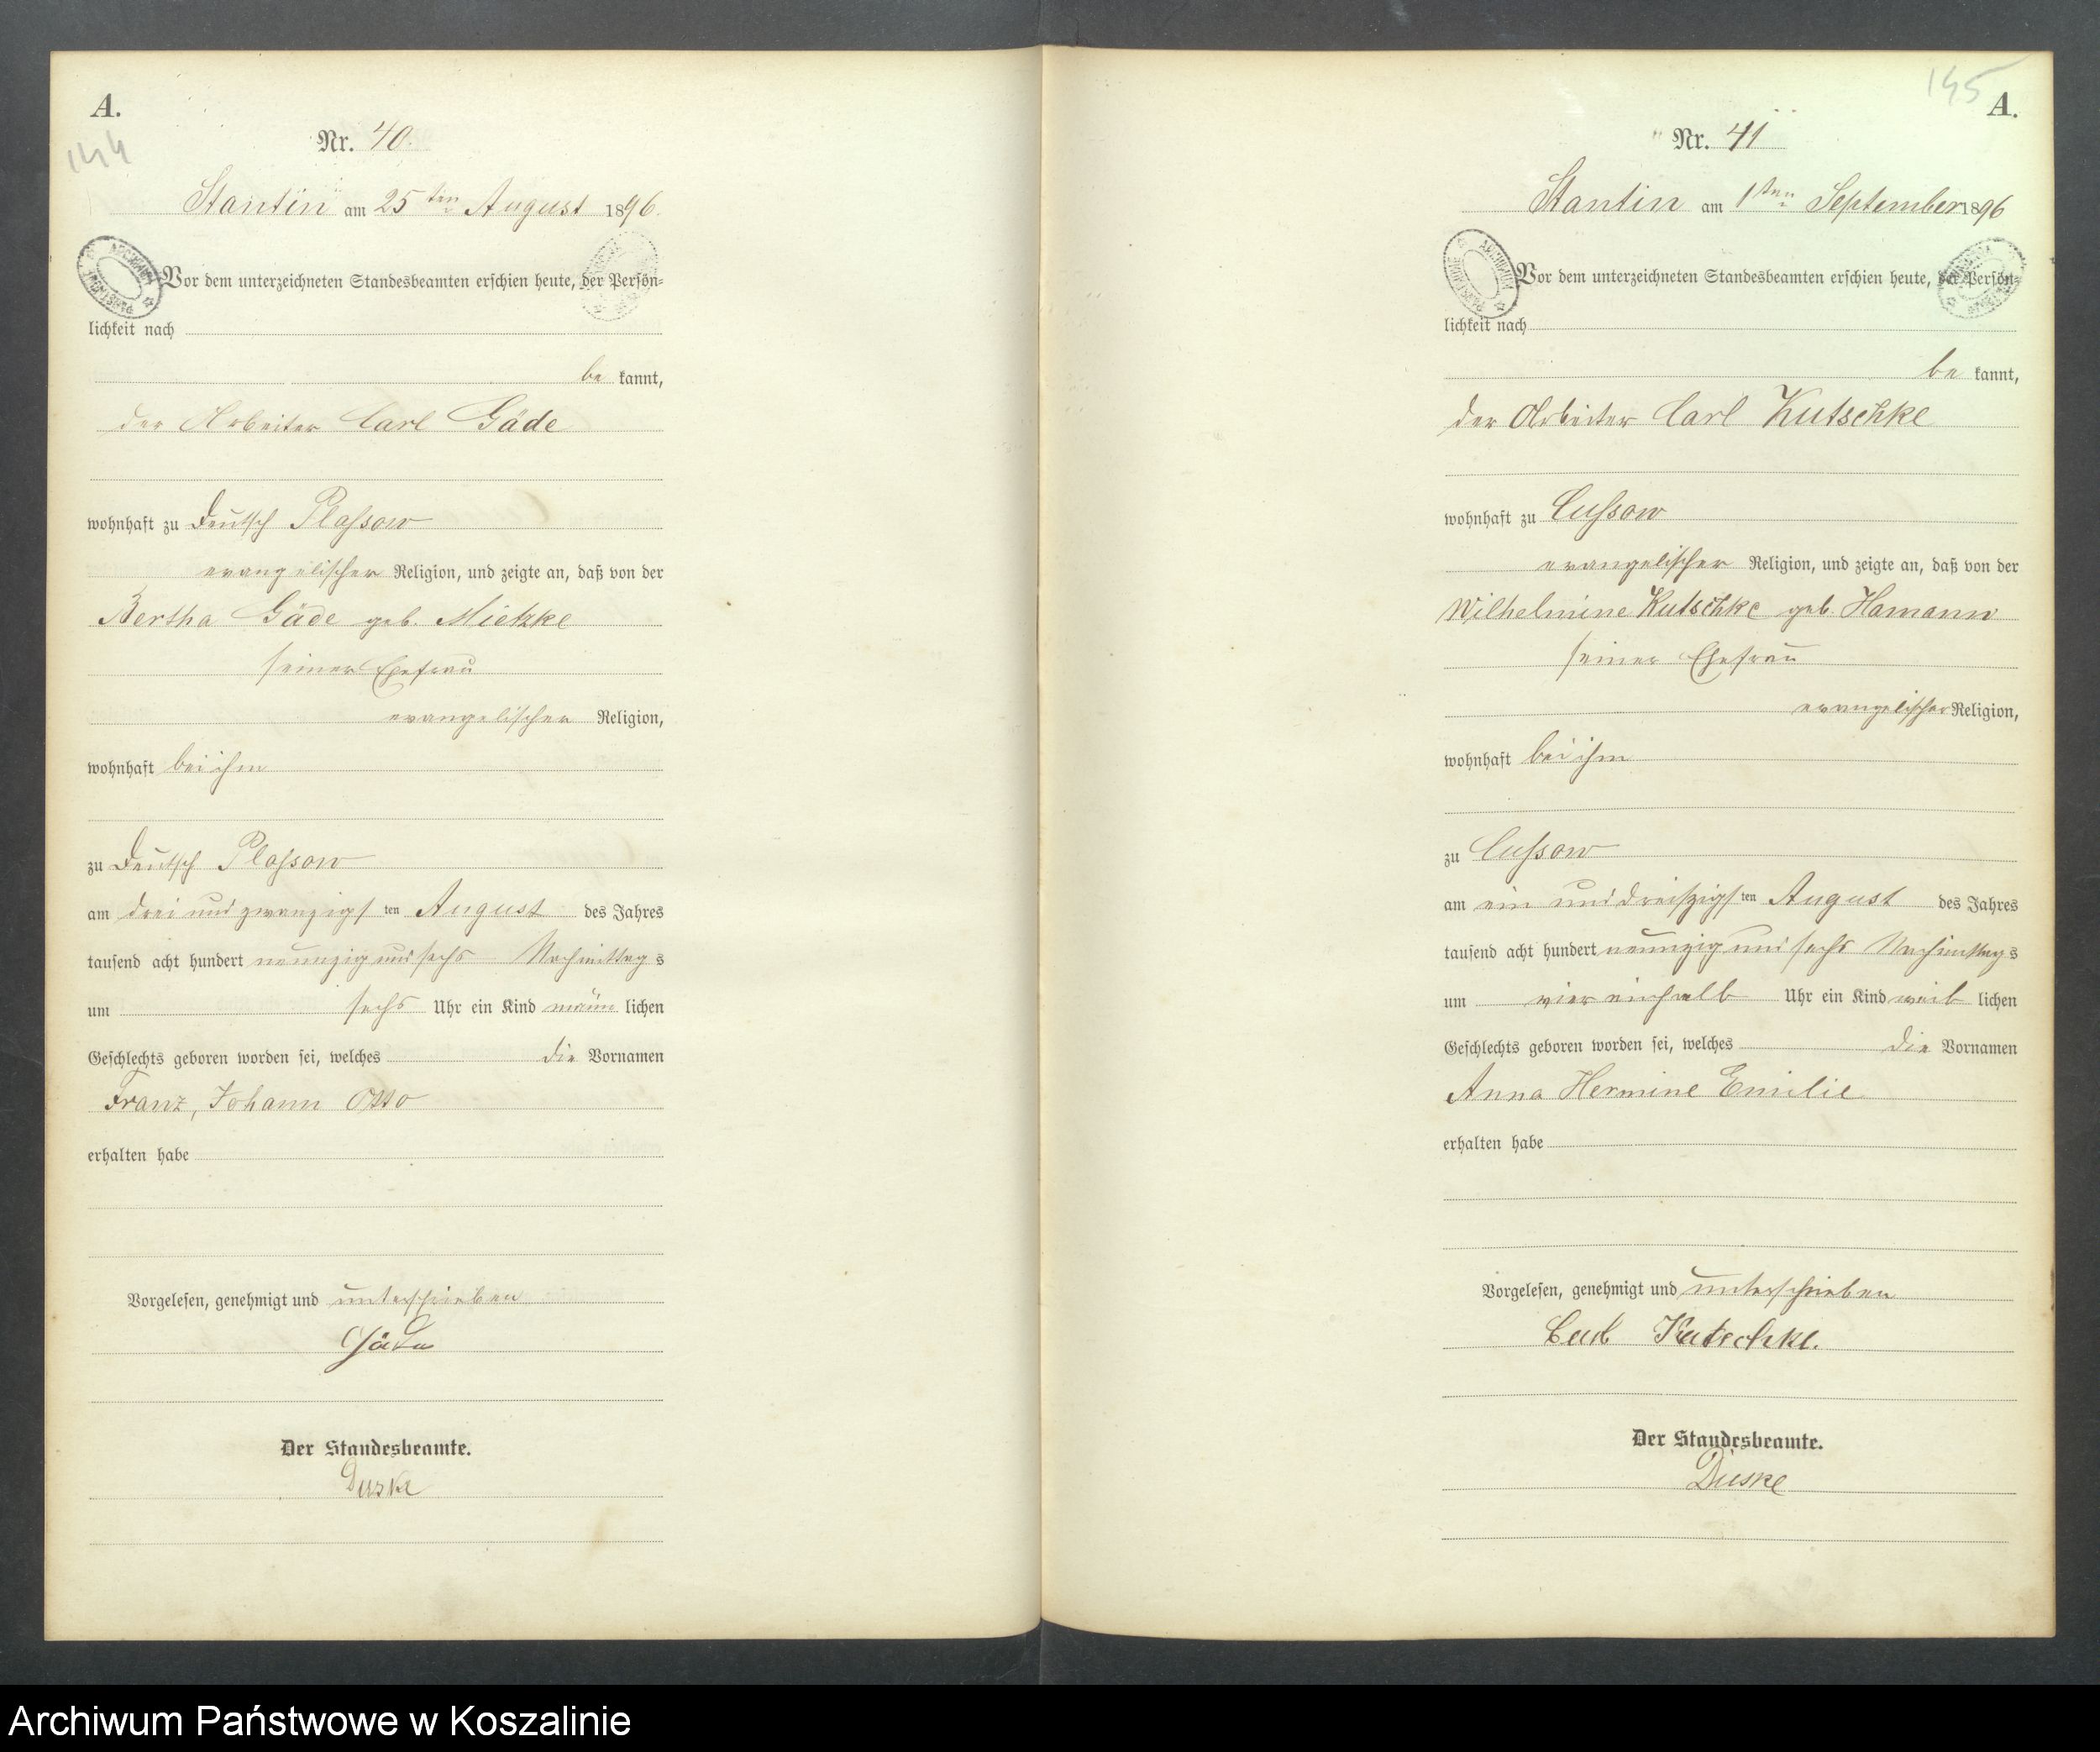 A.
144
Nr. 40.
Stantin am 25ten August 1896.
Vor dem unterzeichneten Standesbeamten erschien heute, der Persön-
lichkeit nach
be kannt,
der Arbeiter Carl Gäde
wohnhaft zu Deutsch Plassow
evangelischer Religion, und zeigte an, daß von der
Bertha Gäde geb. Mietzke
seiner Ehefrau
evangelischer Religion,
wohnhaft bei ihm
zu Deutsch Plassow
am drei und zwanzigsten August des Jahres
tausend acht hundert neunzig und sechs Nachmittags
um sechs Uhr ein Kind männ lichen
Geschlechts geboren worden sei, welches die Vornamen
Franz, Johann Otto
erhalten habe
Vorgelesen, genehmigt und unterschrieben
Gäde
Der Standesbeamte.
Duske
145
A.
Nr. 41
Stantin am 1sten September 1896
Vor dem unterzeichneten Standesbeamten erschien heute, der Persön-
lichkeit nach
be kannt,
der Arbeiter Carl Kutschke
wohnhaft zu Cussow
evangelischer Religion, und zeigte an, daß von der
Wilhelmine Kutschke geb. Hamann
seiner Ehefrau
evangelischer Religion,
wohnhaft bei ihm
zu Cussow
am ein und dreiszigsten August des Jahres
tausend acht hundert neunzig und sechs Nachmittags
um vier einhalb Uhr ein Kind weib lichen
Geschlechts geboren worden sei, welches die Vornamen
Anna Hermine Emilie
erhalten habe
Vorgelesen, genehmigt und unterschrieben
Carl Kutschke.
Der Standesbeamte.
Duske
Archiwum Państwowe w Koszalinie